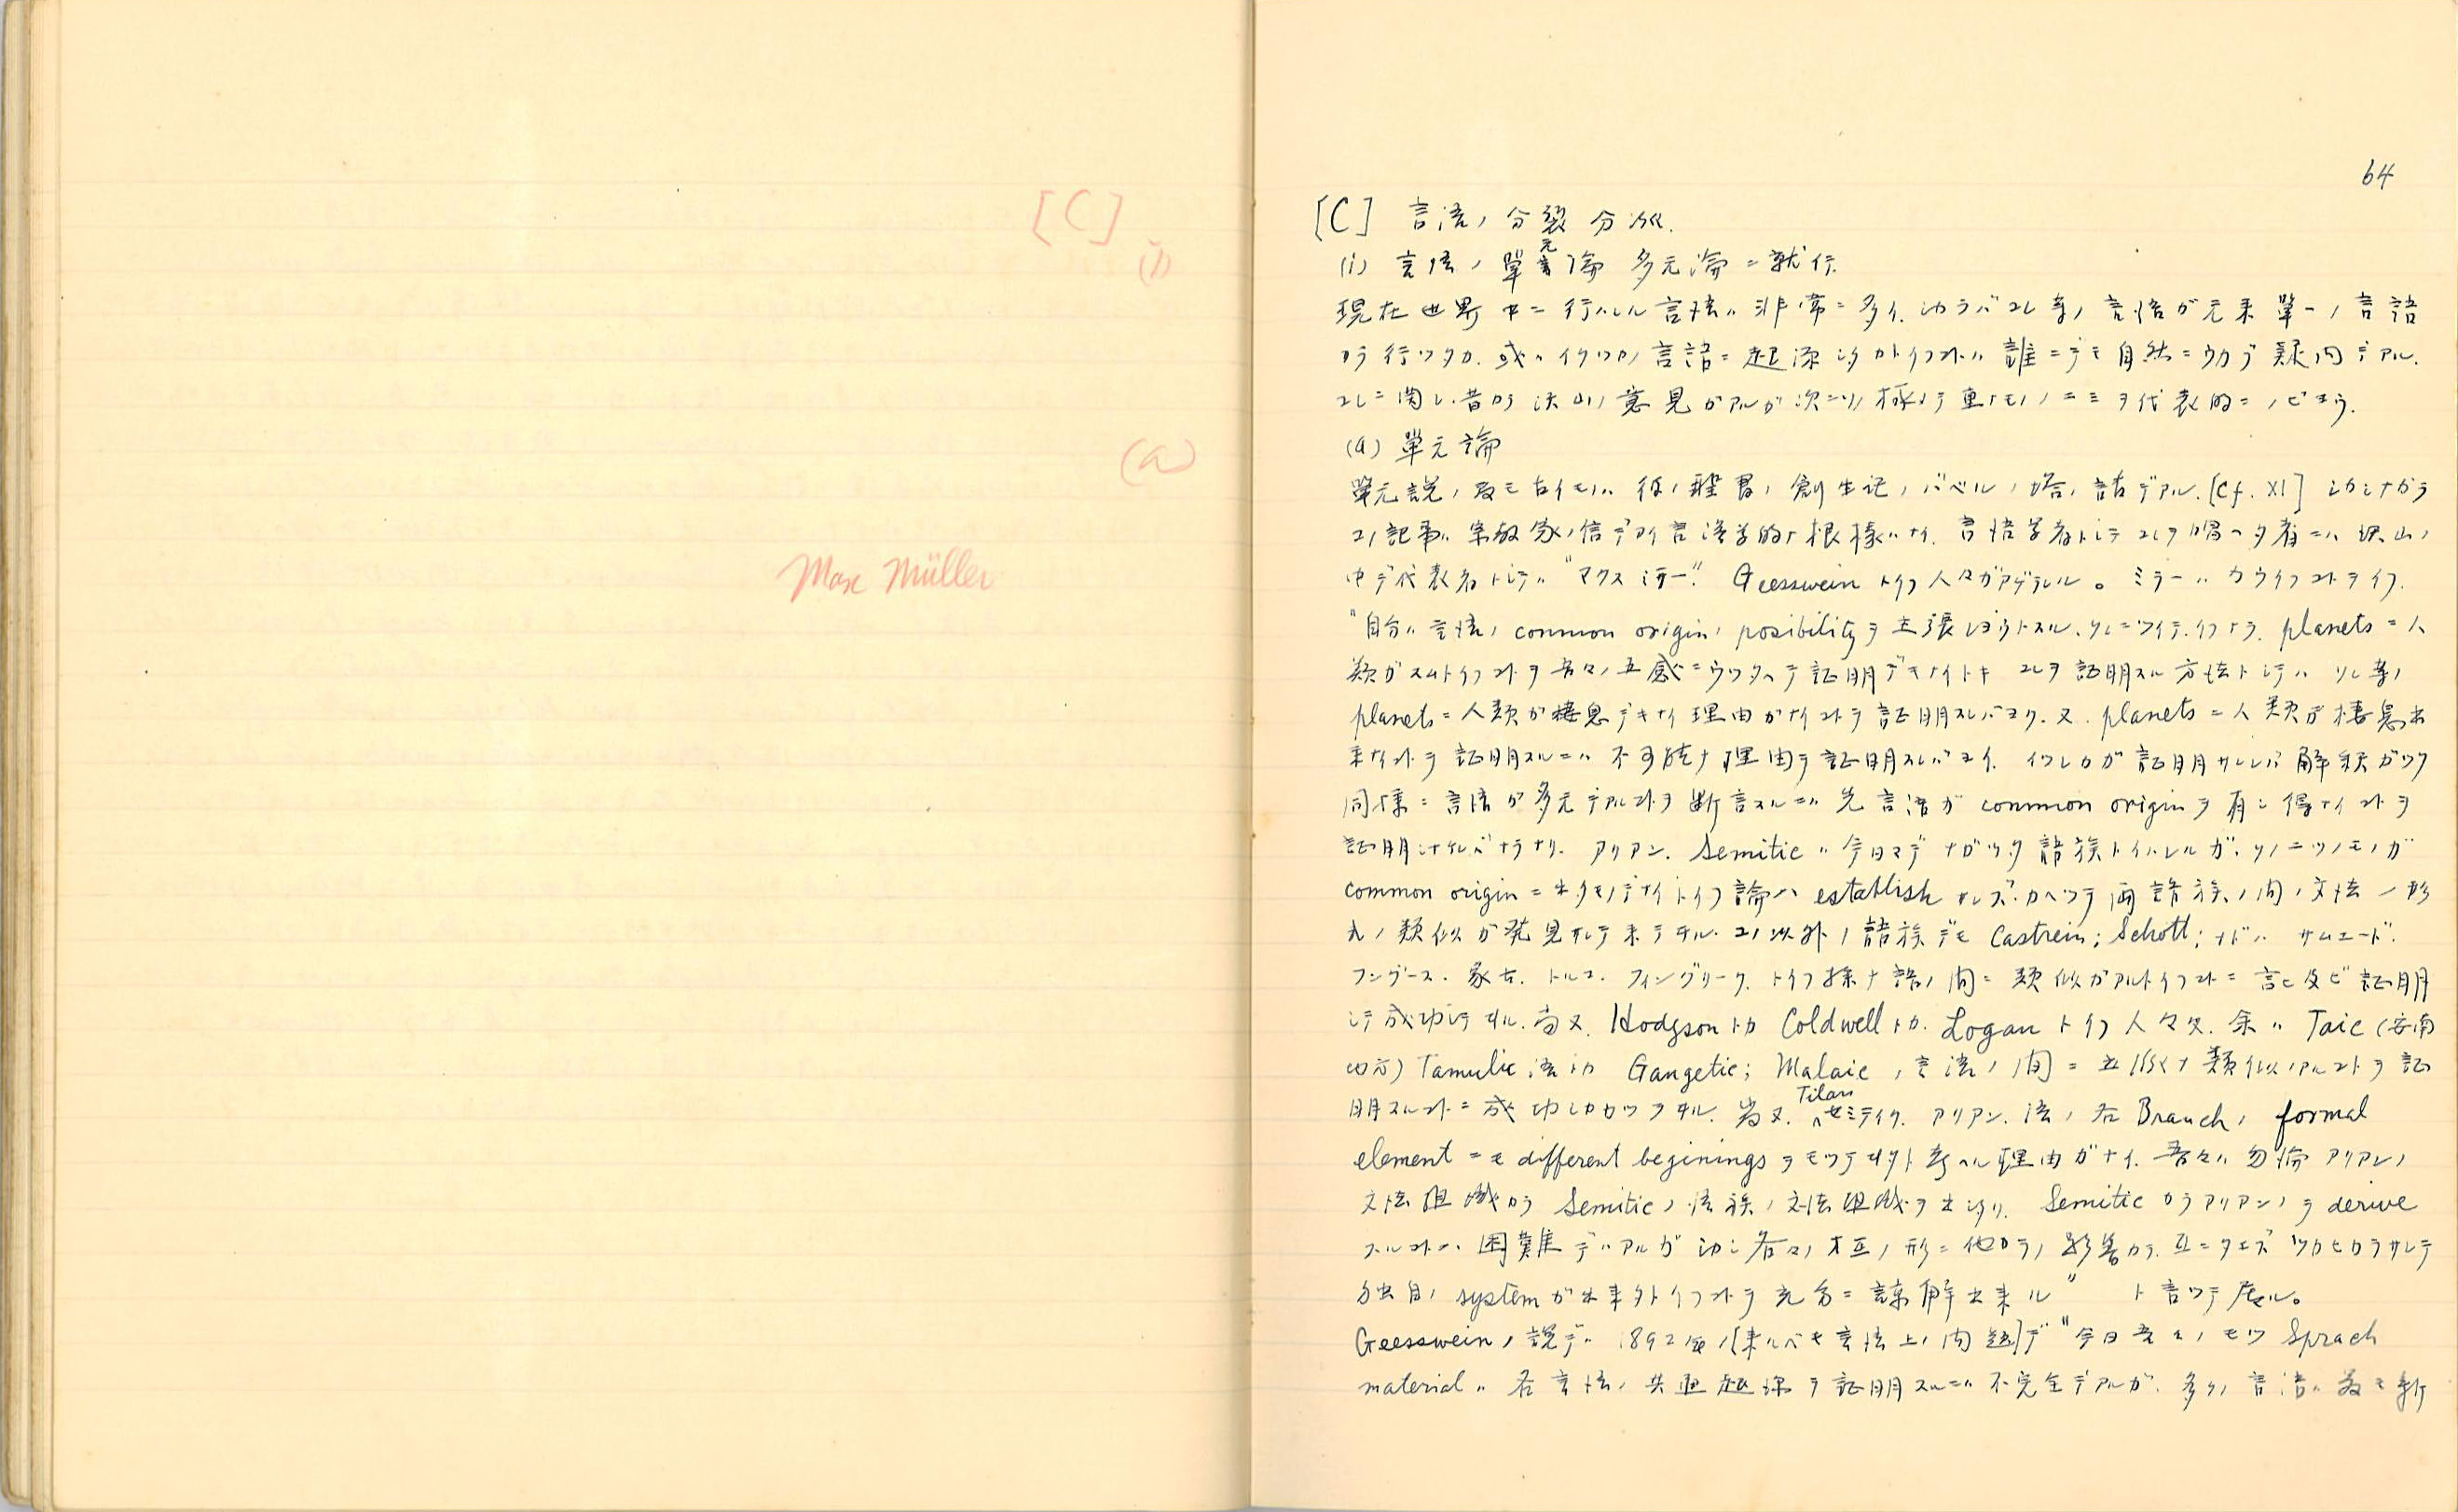 [C]
(i)
(a)
Max Müller
64
[C] 言語ノ分裂分派.
(i) 言語ノ單元論 多元論ニ就イテ.
現在世界中ニ行ハレル言語ハ非常ニ多イ. シカラバコレ等ノ言語ガ元来單一ノ言語
カラ行ツタカ. 或ハイクツカノ言語ニ起源シタカトイフコトハ誰ニデモ自然ニウカブ疑問デアル.
コレニ関シ昔カラ沢山ノ意見ガアルガ次ニソノ極メテ重ナモノノ二三ヲ代表的ニノビヨウ.
(a) 單元論
單元説ノ最モ古イモノハ彼ノ聖書ノ創生記ノバベルノ塔ノ話デアル. [Cf. XI] シカシナガラ
コノ記事ハ宗教家ノ信デアイ言語学的ナ根據ハナイ. 言語学者トシテコレヲ唱ヘタ者ニハ沢山ノ
中デ代表者トシテハ "マクスミラー." Geesswein トイフ人々ガアゲラレル。ミラーハカウイフコトヲイフ.
"自分ハ言語ノ common origin ノ posibility ヲ主張シヨウトスル. ソレニツイテイフナラ. planets ニ人
類ガスムトイフコトヲ吾々ノ五感ニウツタヘテ証明デキナイトキ コレヲ証明スル方法トシテハ ソレ等ノ
planets ニ人類ガ棲息デキナイ理由ガナイコトヲ証明スレバヨク. 又. planets ニ人類ガ棲息出
来ナイコトヲ証明スルニハ不可能ナ理由ヲ証明スレバヨイ. イヅレカガ証明サレレバ解釈ガツク
同様ニ言語ガ多元デアルコトヲ断言スルニハ先言語ガ common origin ヲ有シ得ナイコトヲ
証明シナケレバナラナイ. アリアン. Semitic ハ今日マデナガツタ語族トイハレルガ. ソノ二ツノモノガ
common origin ニ出タモノデナイトイフ論ハ establish サレズ. カヘツテ両語族ノ間ノ文法ノ形
式ノ類似ガ発見サレテ来テヰル. コノ以外ノ語族デモ Castrein; Schott; ナドハ サムエード.
フングース. 蒙古. トルコ. フィングリーク. トイフ様ナ語ノ間ニ類似ガアルトイフコトニ言ヒ及ビ証明
シテ成功シテヰル. 尚又. Hodgson トカ Coldwell トカ. Logan トイフ人々又. 余ハ Taic (安南
地方) Tamulic 語トカ Gangetic; Malaic ノ言語ノ間ニモ 類似ノアルコトヲ証
明スルコトニ成功シカカツテヰル. 尚又. Tilan セミティク. アリアン. 語ノ各 Branch ノ formal
element ニモ different beginings ヲモツテヰタト考ヘル理由ガナイ. 吾々ハ勿論アリアンノ
文法組織カラ Semitic ノ語族ノ文法組織ヲ出シタリ. Semitic カラアリアンノヲ derive
スルコトハ. 困難デハアルガ シカシ各々ノ相互ノ形ニ他カラノ影響カラ. 互ニタエズツカヒカラサレテ
独自ノ system ガ出来タトイフコトヲ充分ニ諒解出来ル" ト言ツテ居ル。
Geesswein ノ説デハ 1892年ノ[来ルベキ言語上ノ問題]デ "今日吾々ノモツ Sprach
material ハ各言語ノ共通起源ヲ証明スルニハ不完全デアルガ. 多クノ言語ハ最モ新